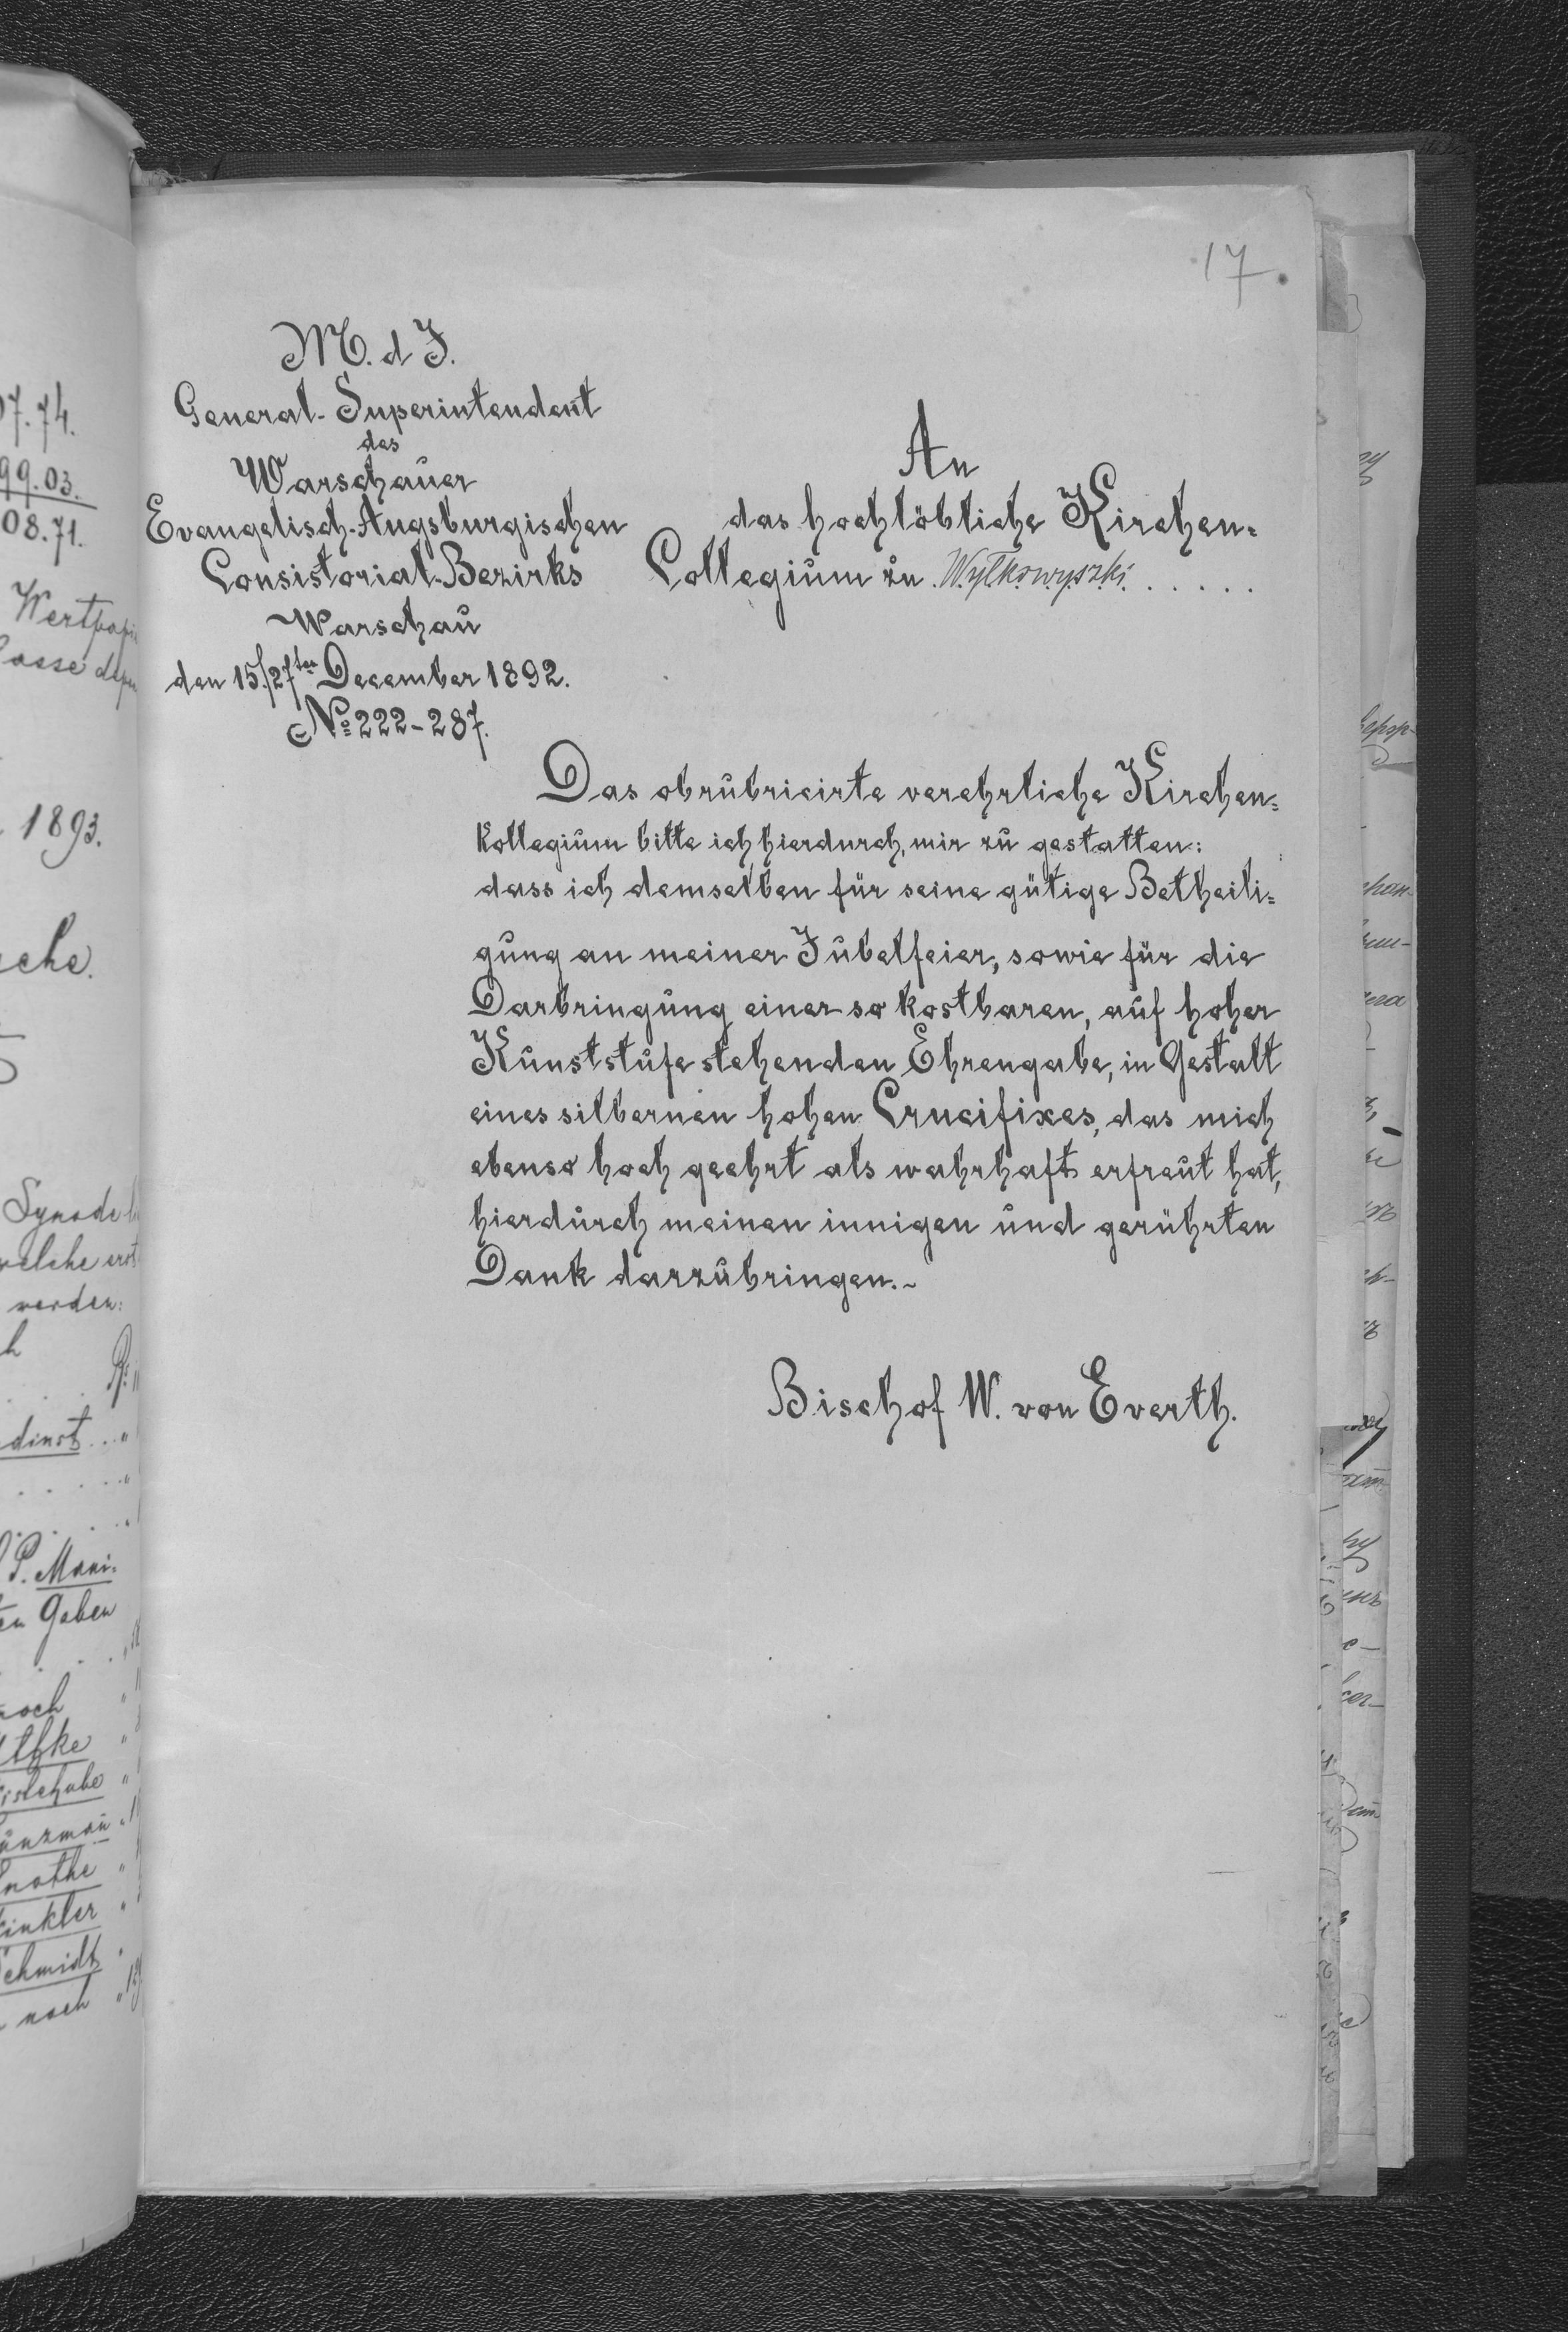 17.
M. d J.
General-Superintendent
des
Warschauer
Evangelisch-Augsburgischen
Consistorial-Bezirks
Warschau
den 15./27ten December 1892.
№ 222-287.
An
das hochlöbliche Kirchen=
Collegium zu Wyłkowyszki......
Das obrubricirte verehrliche Kirchen=
Kollegium bitte ich hierdurch, mir zu gestatten:
dass ich demselben für seine gütige Betheili=
gung an meiner Jubelfeier, sowie für die
Darbringung einer so kostbaren, auf hoher
Kunststufe stehenden Ehrengabe, in Gestalt
eines silbernen hohen Crucifixes, das mich
ebenso hoch geehrt als wahrhaft erfreut hat,
hierdurch meinen innigen und gerührten
Dank darzubringen.~
Bischof W. von Everth.
7.74.
99.03.
08.71.
1893.
Synode
werden:
P. Mani=
Gaben
noch